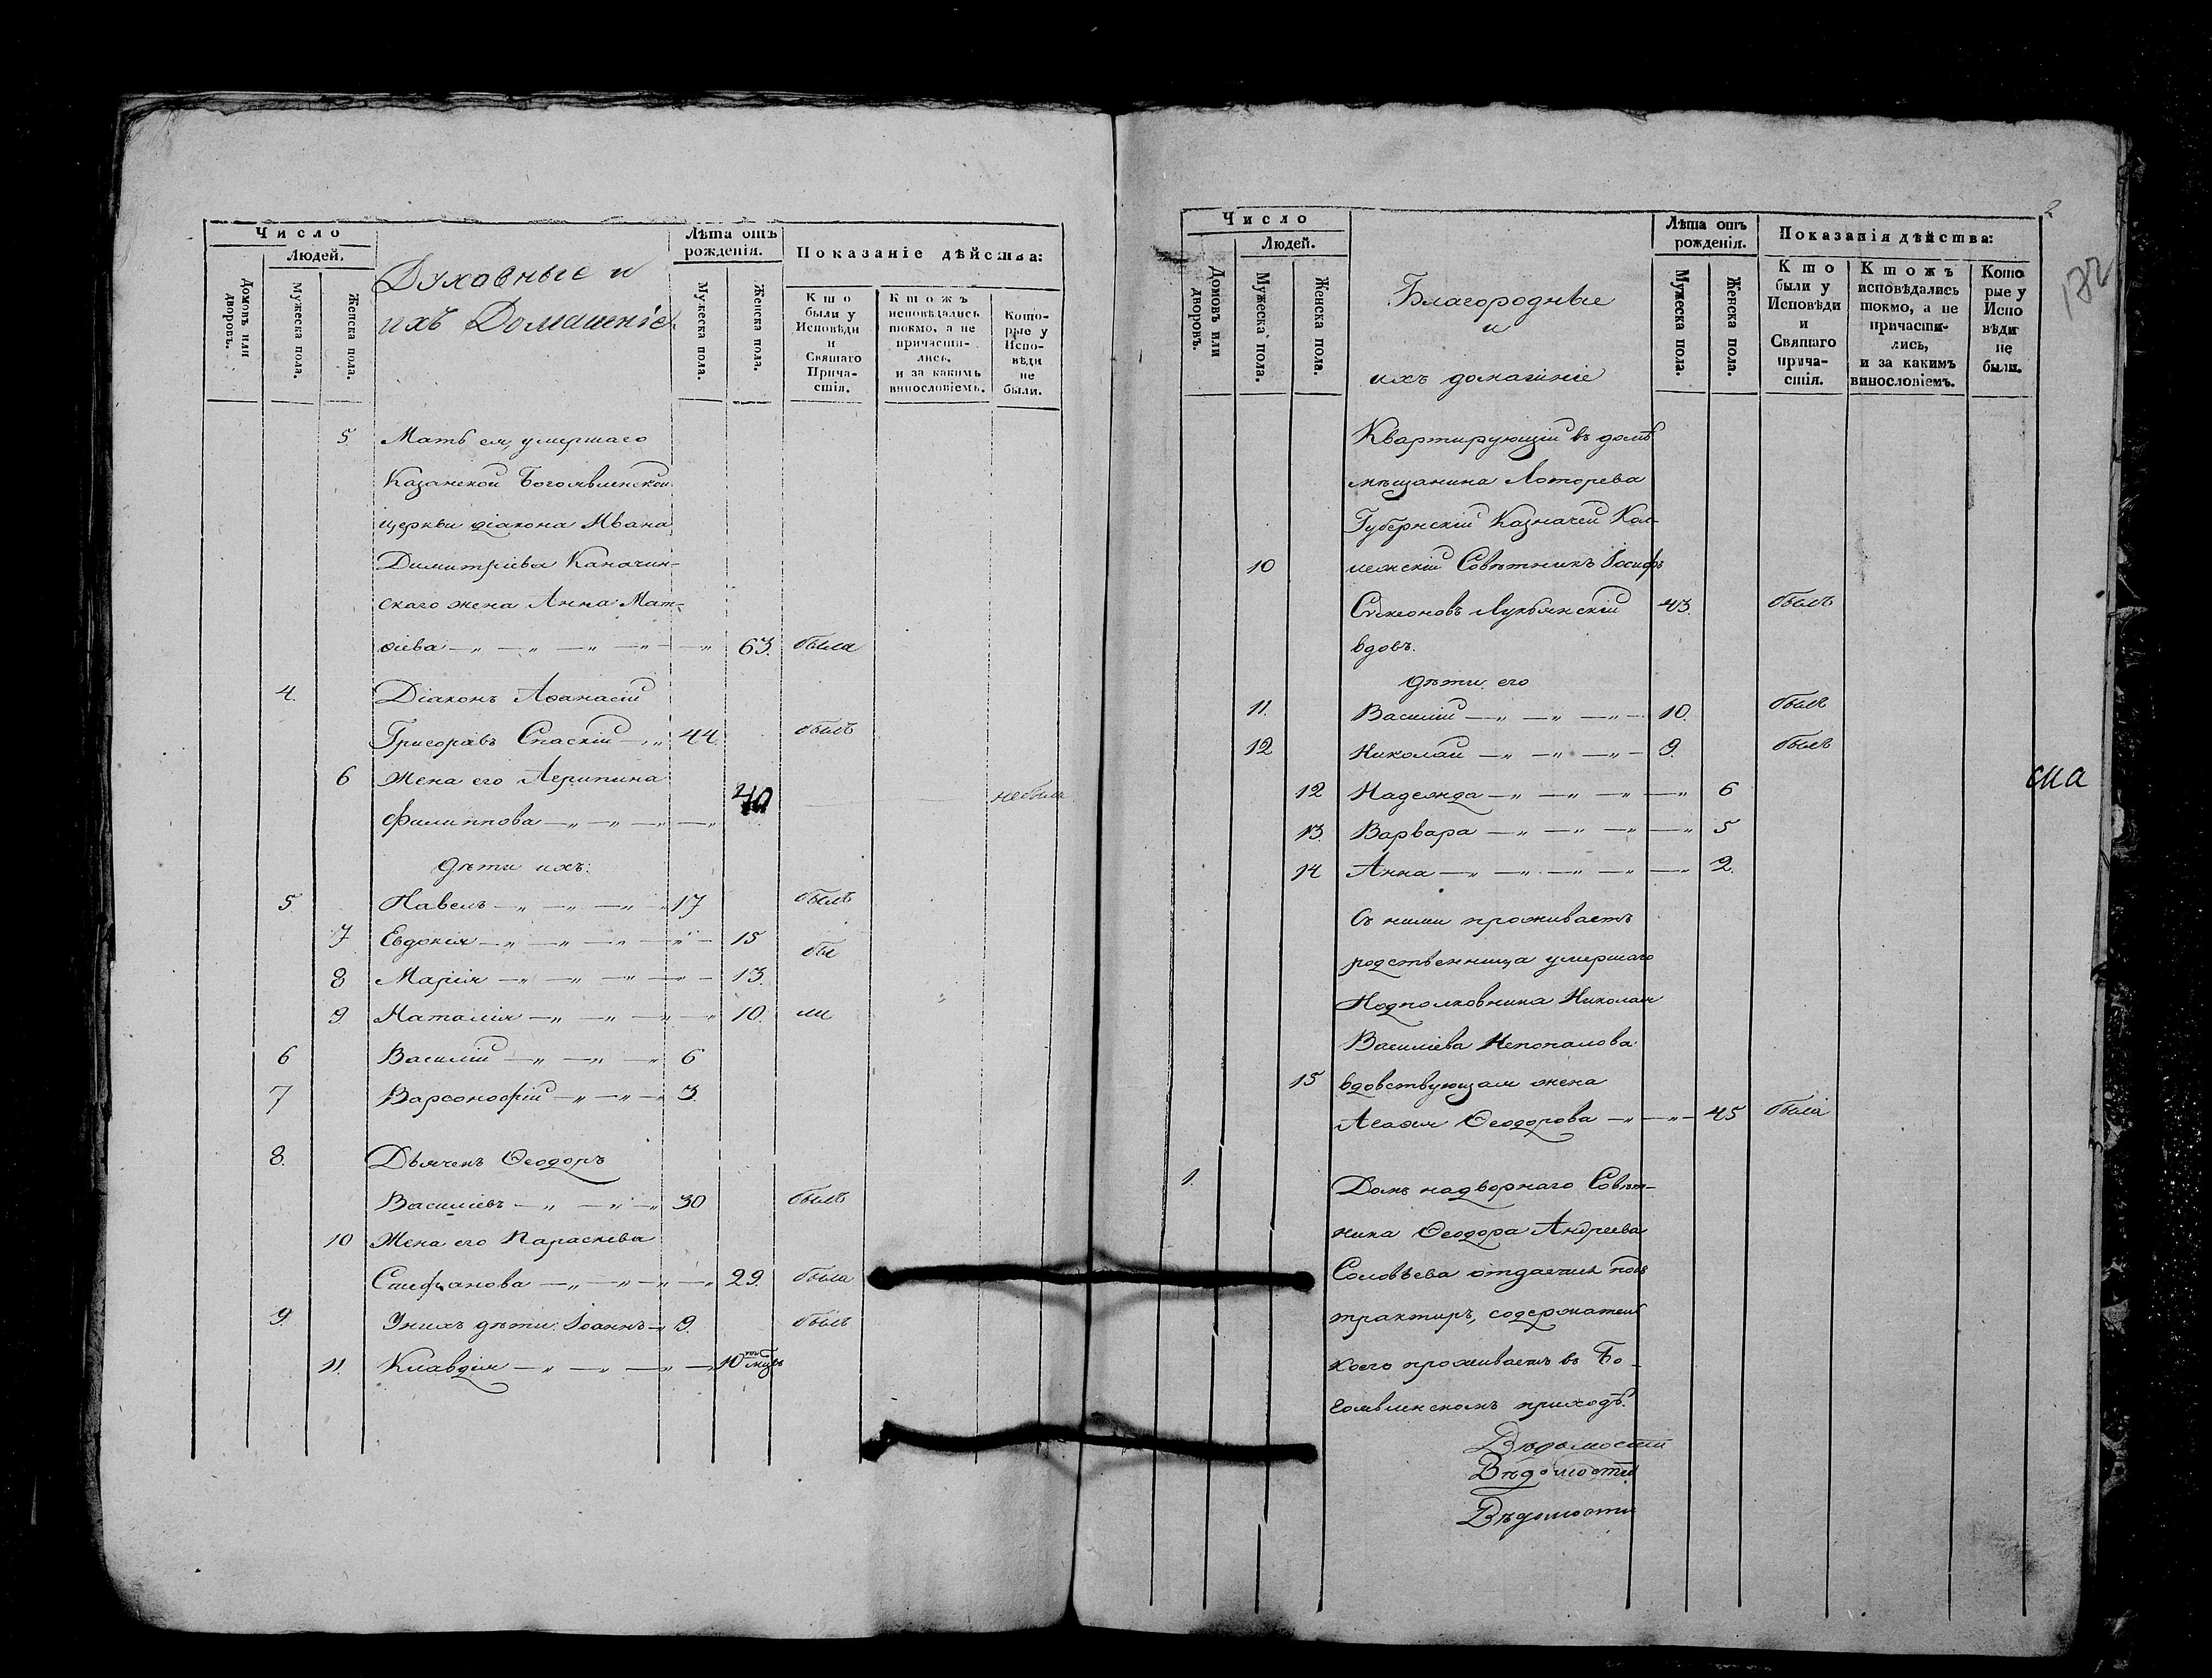 Число
Людей.
Домовъ или дворовъ.
Мужеска пола.
Женска пола.
Духовные и
ихъ Домашніе
Лѣта отъ рожденія.
Мужеска пола.
Женска пола.
Показаніе дѣйства:
Кто были у Исповѣди и Святаго Прича-стія.
Ктожъ исповѣдались токмо, а не причасти-лись, и за какимъ винословіемъ.
Кото-рые у Испо-вѣди не были.
5 Мать ея, умершаго
Казанской Богоявленской
церкви діакона Ивана
Димитріева Каначин-
скаго жена Анна Мат-
ѳіева 63. была
4. Діаконъ Аѳанасій
Григорьевъ Спаскій 44. былъ
6 Жена его Агрипина
Филиппова 40 небыла
дѣти ихъ:
5. Павелъ 17 былъ
7 Евдокія 15 бы
8 Марія 13.
9 Наталія 10. ли
6 Василій 6
7 Варсонофій 3.
8. Дьячекъ Ѳеодоръ
Василіевъ 30 былъ
10 Жена его Параскева
Стефанова 29. была
9. Унихъ дѣти: Іоаннъ 9. былъ
11. Клавдія 10
2
182
Число
Людей.
Домовъ или дворовъ.
Мужеска пола.
Женска пола.
Благородные
и
ихъ домашніе
Лѣта отъ рожденія.
Мужеска пола.
Женска пола.
Показанія дѣйства:
Кто были у Исповѣди и Святаго прича-стія.
Ктожъ исповѣдались токмо, а не причасти-лись, и за какимъ винословіемъ.
Кото рые у Испо вѣди не были.
Квартирующій въ домѣ
мѣщанина Лоторева
Губернскій Казначей Кол-
10 лежскій Совѣтникъ Іосифъ
Симеоновъ Лукьянскій 43. былъ
вдовъ.
дѣти его
11. Василій 10. былъ
12 Николай 9. былъ
12 Надежда 6
13. Варвара 5
14 Анна 2.
Съ ними проживаетъ
родственница умершаго
Подполковника Николая
Василіева Непопалова
15 вдовствующая жена
Агаѳія Ѳеодорова 45 была
1. Домъ надворнаго Совѣт-
ника Ѳеодора Андреева
Соловьева отдается подъ
трактиръ, содержатель
коего проживаетъ въ Бо-
гоявленскомъ приходѣ.
Вѣдомости
Вѣдомости
Вѣдомости
сла